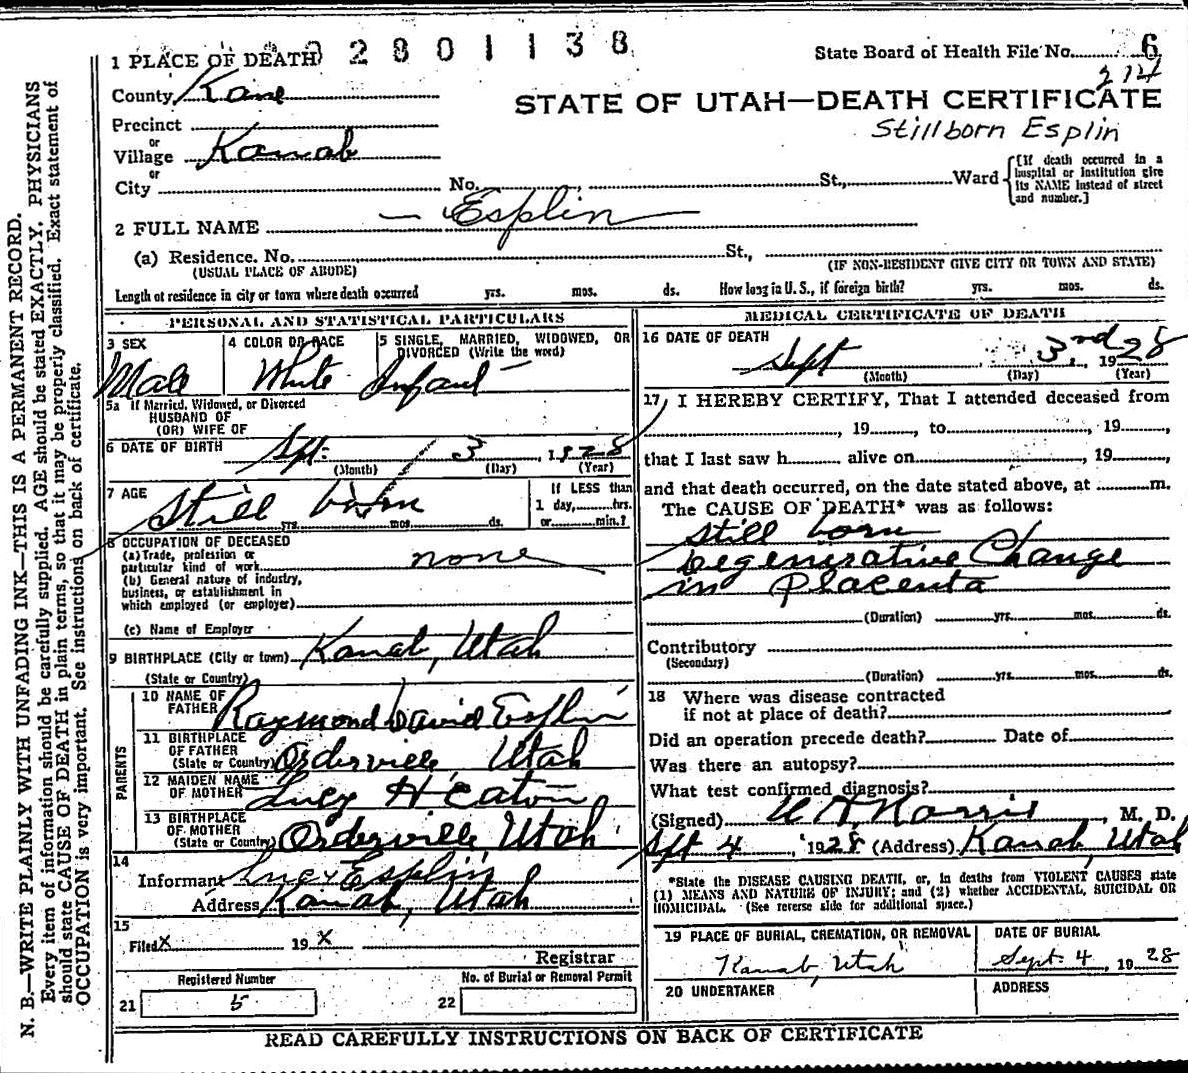 2 8 0 1 1 3 8
1 PLACE OF DEATH
State Board of Health File No. 6
214
County Kane
STATE OF UTAH—DEATH CERTIFICATE
Stillborn Esplin
Precinct
or
Village Kanab
or
City No. St., Ward
[If death occurred in a
hospital or institution give
its NAME instead of street
and number.]
2 FULL NAME — Esplin —
(a) Residence. No. St.,
(USUAL PLACE OF ABODE) (IF NON-RESIDENT GIVE CITY OR TOWN AND STATE)
Length of residence in city or town where death occurred yrs. mos. ds. How long in U. S., if foreign birth? yrs. mos. ds.
PERSONAL AND STATISTICAL PARTICULARS
3 SEX
Male
4 COLOR OR RACE
White
5 SINGLE, MARRIED, WIDOWED, OR
DIVORCED (Write the word)
Infant
5a If Married, Widowed, or Divorced
HUSBAND OF
(OR) WIFE OF
6 DATE OF BIRTH Sept. 3 1928
(Month) (Day) (Year)
7 AGE
Still born
yrs. mos. ds.
If LESS than
1 day, hrs.
or min.?
8 OCCUPATION OF DECEASED
(a) Trade, profession or
particular kind of work none
(b) General nature of industry,
business, or establishment in
which employed (or employer)
(c) Name of Employer
9 BIRTHPLACE (City or town) Kanab, Utah
(State or Country)
PARENTS
10 NAME OF
FATHER Raymond David Esplin
11 BIRTHPLACE
OF FATHER
(State or Country) Orderville Utah
12 MAIDEN NAME
OF MOTHER Lucy Heaton
13 BIRTHPLACE
OF MOTHER
(State or Country) Orderville, Utah
14
Informant Lucy Esplin
Address Kanab, Utah
15
Filed X 19 X
Registrar
Registered Number
21 5
No. of Burial or Removal Permit
22
MEDICAL CERTIFICATE OF DEATH
16 DATE OF DEATH
Sept 3rd, 1928
(Month) (Day) (Year)
17 I HEREBY CERTIFY, That I attended deceased from
, 19 , to , 19 ,
that I last saw h alive on , 19 ,
and that death occurred, on the date stated above, at m.
The CAUSE OF DEATH* was as follows:
Still born
Degenerative Change
in Placenta
(Duration) yrs. mos. ds.
Contributory
(Secondary)
(Duration) yrs. mos. ds.
18 Where was disease contracted
if not at place of death?
Did an operation precede death? Date of
Was there an autopsy?
What test confirmed diagnosis?
(Signed) Norris, M. D.
Sept 4, 1928 (Address) Kanab, Utah
*State the DISEASE CAUSING DEATH, or, in deaths from VIOLENT CAUSES state
(1) MEANS AND NATURE OF INJURY; and (2) whether ACCIDENTAL, SUICIDAL OR
HOMICIDAL. (See reverse side for additional space.)
19 PLACE OF BURIAL, CREMATION, OR REMOVAL
Kanab, Utah
DATE OF BURIAL
Sept. 4, 1928
20 UNDERTAKER
ADDRESS
READ CAREFULLY INSTRUCTIONS ON BACK OF CERTIFICATE
N. B.—WRITE PLAINLY WITH UNFADING INK—THIS IS A PERMANENT RECORD.
Every item of information should be carefully supplied. AGE should be stated EXACTLY. PHYSICIANS
should state CAUSE OF DEATH in plain terms, so that it may be properly classified. Exact statement of
OCCUPATION is very important. See instructions on back of certificate.